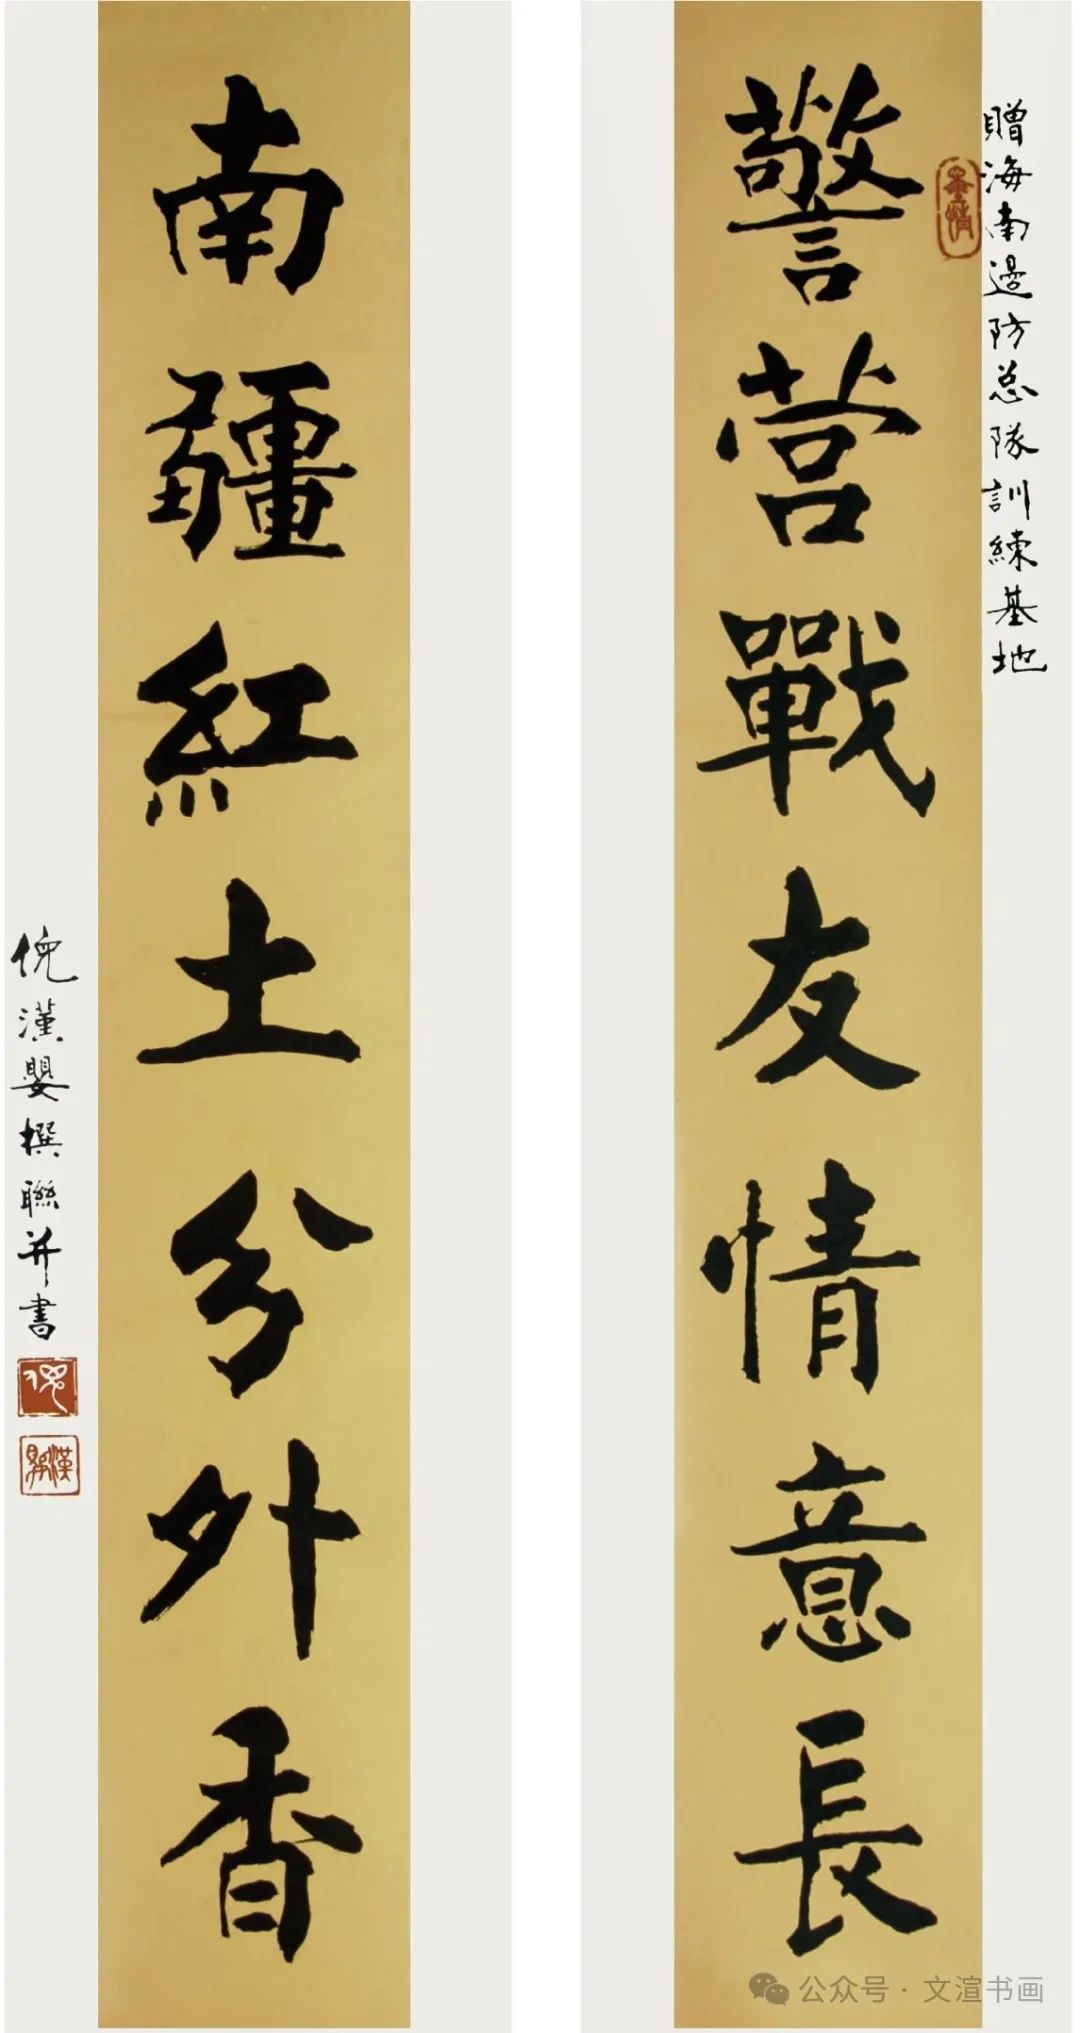 贈海南邊防总隊訓練基地
警营戰友情意長
南疆紅土分外香
倪漢嬰撰聯并書
公众号 · 文渲书画